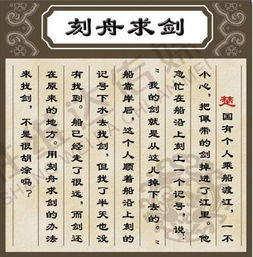 刻舟求剑
楚国有个人乘船渡江，一不
小心，把佩带的剑掉进了江里。他
急忙在船沿上刻上一个记号，说：
“我的剑就是从这儿掉下去的。”
船靠岸后，这个人顺着船沿上的
记号下水去找剑，但找了半天也没
有找到。船已经走了很远，而剑还
在原来的地方。用刻舟求剑的办法
来找剑，不是很胡涂吗？